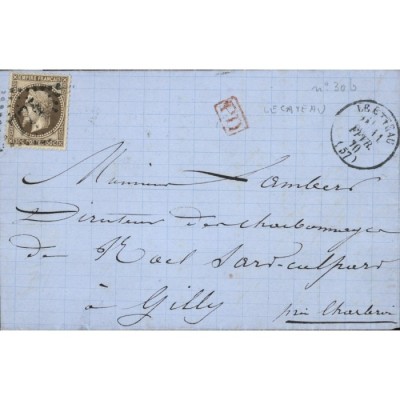 EMPIRE FRANÇAIS
n° 30b
(LE CATEAU)
PD
LE CATEAU
11
FEVR
70
(57)
Monsieur Lambert
Directeur des charbonnages
de Noël Sart-culpart
à Gilly
près Charleroi